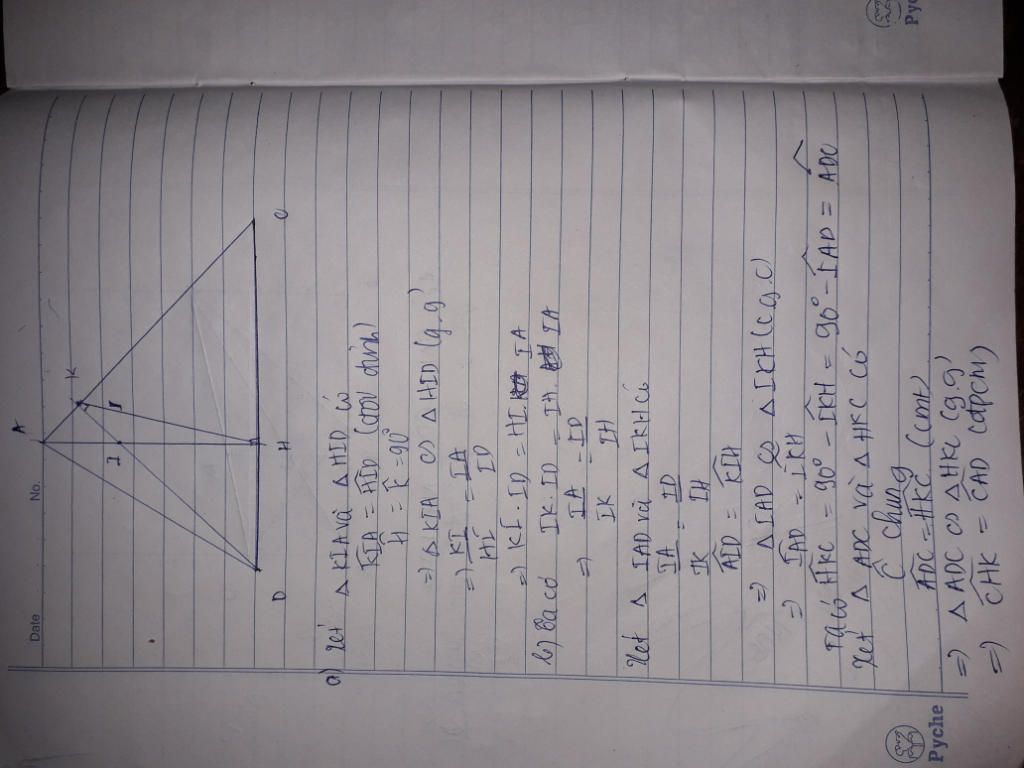 Date
No.
A
K
I
1
D
H
C
a) Xét △ KIA và △ HID có
KIA = HID (đối đỉnh)
H = K = 90°
=> △ KIA ∽ △ HID (g.g)
=> KI/HI = IA/ID
=> KI . ID = HI . IA
b) Ta có IK . ID = IH . IA
=> IA/IK = ID/IH
Xét △ IAD và △ IKH có
IA/IK = ID/IH
AID = KIH
=> △ IAD ∽ △ IKH (c.g.c)
=> IAD = IKH
Ta có HKC = 90° - IKH = 90° - IAD = ADC
Xét △ ADC và △ HKC có
C chung
ADC = HKC (cmt)
=> △ ADC ∽ △ HKC (g.g)
=> CHK = CAD (đpcm)
Pyche
Pyc